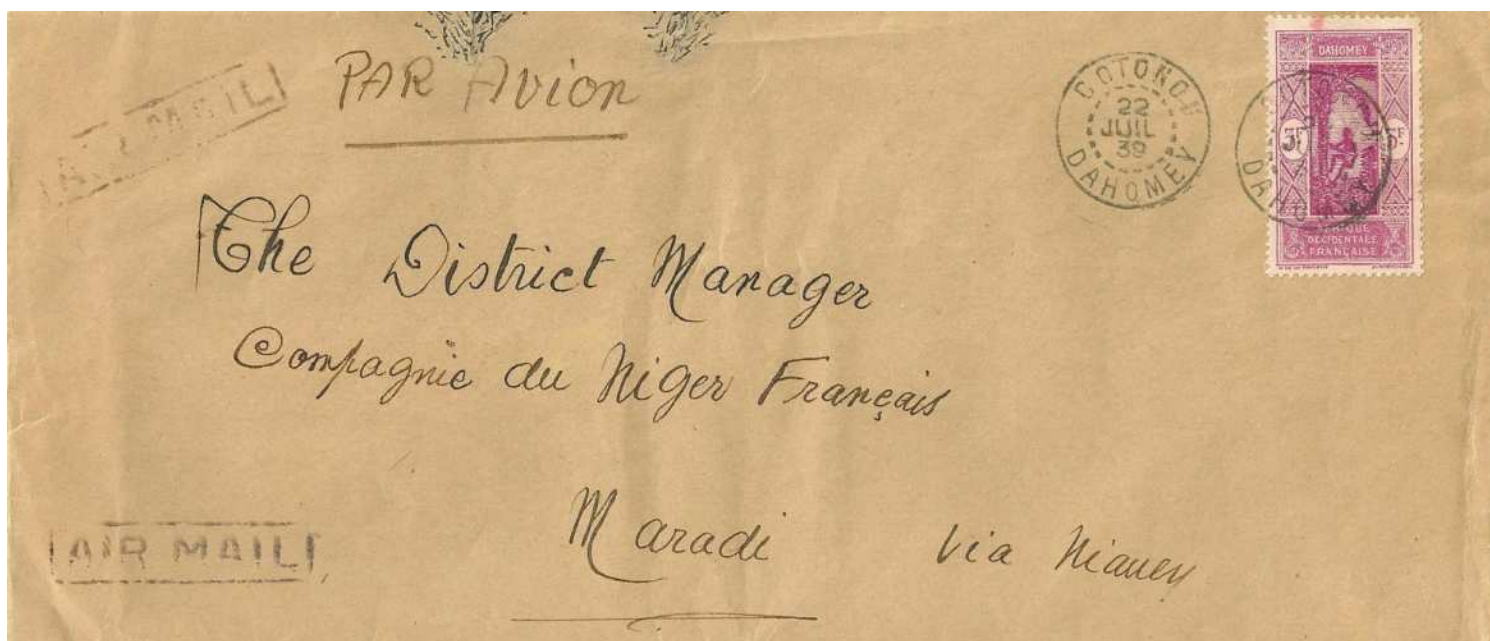 PAR Avion
AIR MAIL
COTONOU
22
JUIL
39
DAHOMEY
DAHOMEY
5F
5F
AFRIQUE
OCCIDENTALE
FRANÇAISE
DAHOMEY
The District Manager
Compagnie du Niger Français
Maradi Via Niamey
AIR MAIL